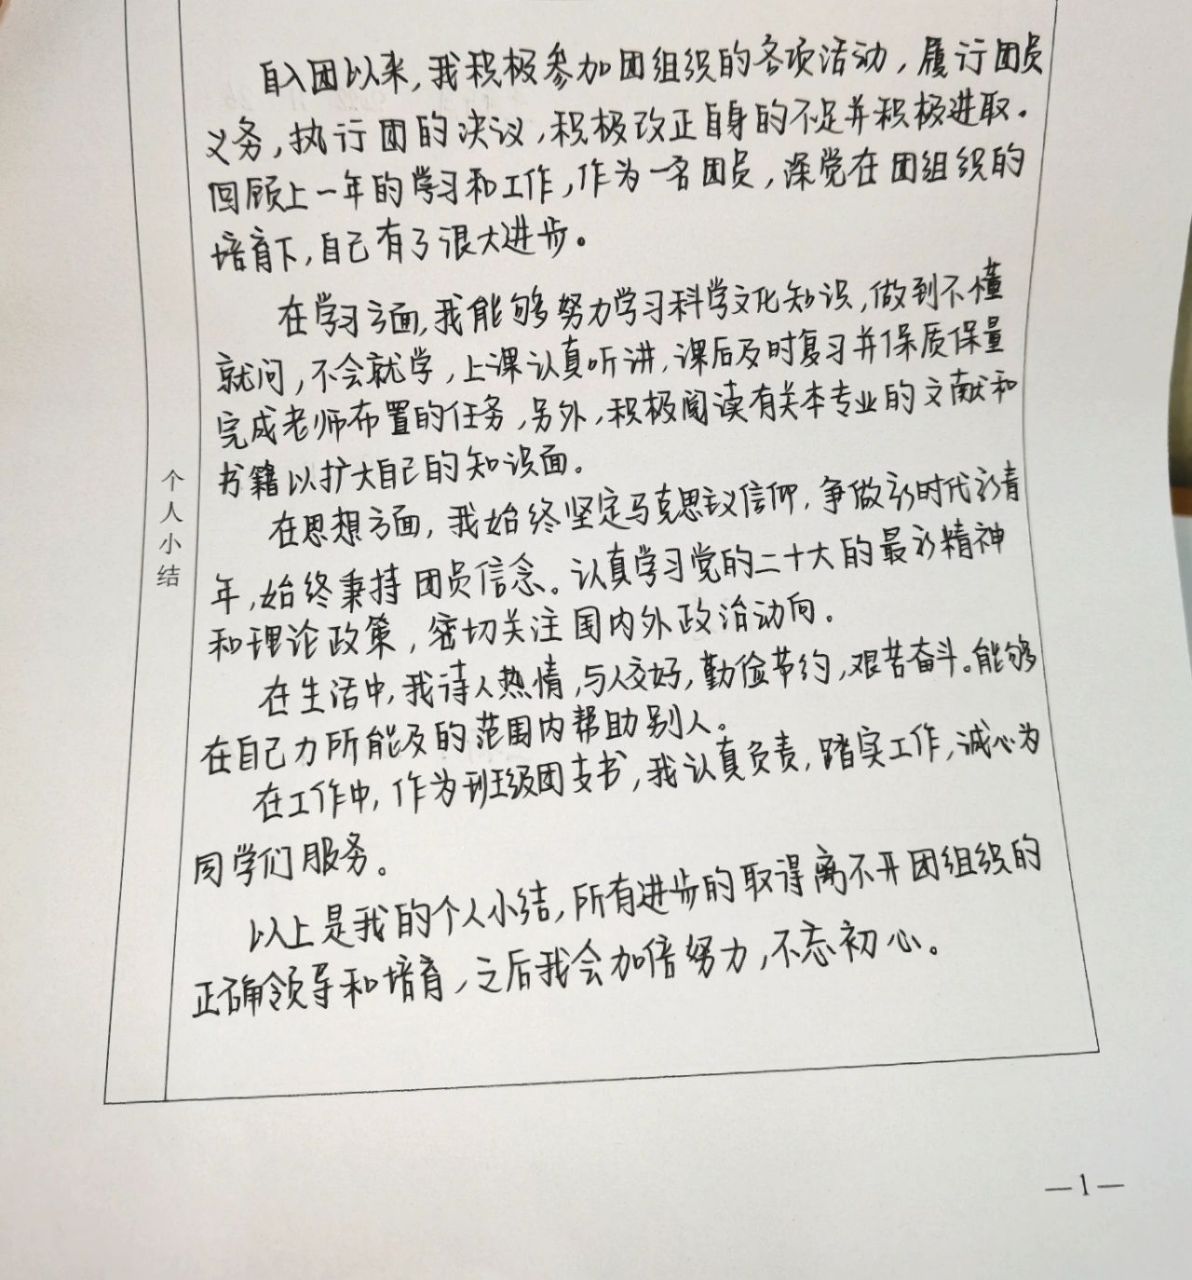 自入团以来，我积极参加团组织的各项活动，履行团员
义务，执行团的决议，积极改正自身的不足并积极进取。
回顾上一年的学习和工作，作为一名团员，深觉在团组织的
培育下，自己有了很大进步。
在学习方面，我能够努力学习科学文化知识，做到不懂
就问，不会就学，上课认真听讲，课后及时复习并保质保量
完成老师布置的任务，另外，积极阅读有关本专业的文献和
书籍以扩大自己的知识面。
个人小结
在思想方面，我始终坚定马克思主义信仰，争做新时代新青
年，始终秉持团员信念。认真学习党的二十大的最新精神
和理论政策，密切关注国内外政治动向。
在生活中，我待人热情，与人交好，勤俭节约，艰苦奋斗。能够
在自己力所能及的范围内帮助别人。
在工作中，作为班级团支书，我认真负责，踏实工作，诚心为
同学们服务。
以上是我的个人小结，所有进步的取得离不开团组织的
正确领导和培育，之后我会加倍努力，不忘初心。
—1—